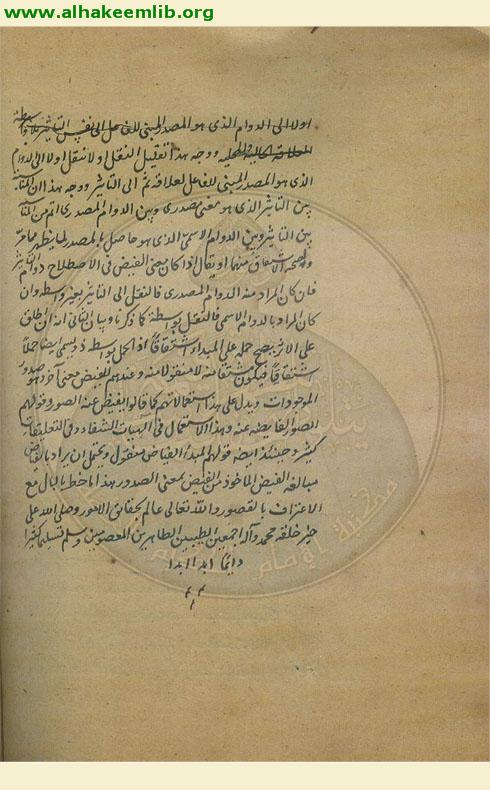 www.alhakeemlib.org
اولا الى الدوام الذي هو المصدر المبني للفاعل الى نفس التأثير بلا واسطة
ووجه هذا تعليل النقل اولا ننقل اولا الى الدوام
الذي هو المصدر المبني للفاعل لعلاقة ثم الى التأثير ووجه هذا ان المناسبة
بين التأثير الذي هو معنى مصدري وبين الدوام المصدري اتم من المناسبة
بين التأثير وبين الدوام الاسمي الذي هو حاصل بالمصدر لما يظهر مما مر
الاشتقاق منهما او يقال اذا كان معنى الفيض في الاصطلاح دوام التأثير
فان كان المراد منه الدوام المصدري فالنقل الى التأثير بغير واسطة وان
كان المراد بالدوام الاسمي فالنقل بواسطة كما ذكرنا وبيان الثاني انه ان اطلق
على الاثر يصح حمله على المبداء اشتقاقا اذ الحمل بواسطة ذو يسمى ايضا حملا
اشتقاقا فيكون مشتقا منه لا منقولا منه وعندهم للفيض معنى آخر وهو صدور
الموجودات ويدل على هذا استعمالاتهم كما قالوا يفيض عنه الصور وقولهم
الصور الفايضة عنه وهذا الاستعمال في الهيات الشفاء وفي التعليقات
كثير وحينئذ ايضا قولهم المبدأ الفياض منقول ويحتمل ان يراد بالفياض
مبالغة الفيض المأخوذ من الفيض بمعنى الصدور هذا ما خطر بالبال مع
الاعتراف بالقصور والله تعالى عالم بحقائق الامور وصلى الله على
خير خلقه محمد وآله اجمعين الطيبين الطاهرين المعصومين وسلم تسليما كثيرا
دايما ابدا ابدا